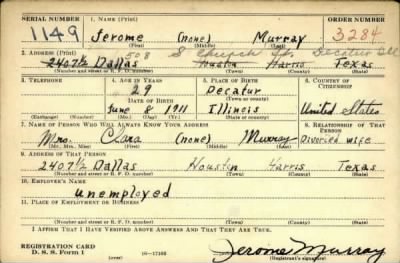 SERIAL NUMBER 1. NAME (Print) ORDER NUMBER
1149 Jerome (none) Murray 3284
(First) (Middle) (Last)
2. ADDRESS (Print)
508 S Church St. Decatur Ill
2407½ Dallas Houston Harris Texas
(Number and street or R. F. D. number) (Town) (County) (State)
3. TELEPHONE 4. AGE IN YEARS 5. PLACE OF BIRTH 6. COUNTRY OF CITIZENSHIP
29 Decatur
DATE OF BIRTH (Town or county)
June 8 1911 Illinois United States
(Exchange) (Number) (Mo.) (Day) (Yr.) (State or country)
7. NAME OF PERSON WHO WILL ALWAYS KNOW YOUR ADDRESS 8. RELATIONSHIP OF THAT PERSON
Mrs. Clara (none) Murray Divorced wife
(Mr., Mrs., Miss) (First) (Middle) (Last)
9. ADDRESS OF THAT PERSON
2407½ Dallas Houston Harris Texas
(Number and street or R. F. D. number) (Town) (County) (State)
10. EMPLOYER'S NAME
unemployed
11. PLACE OF EMPLOYMENT OR BUSINESS
(Number and street or R. F. D. number) (Town) (County) (State)
I AFFIRM THAT I HAVE VERIFIED ABOVE ANSWERS AND THAT THEY ARE TRUE.
REGISTRATION CARD
D. S. S. Form 1 Jerome Murray
(Registrant's signature)